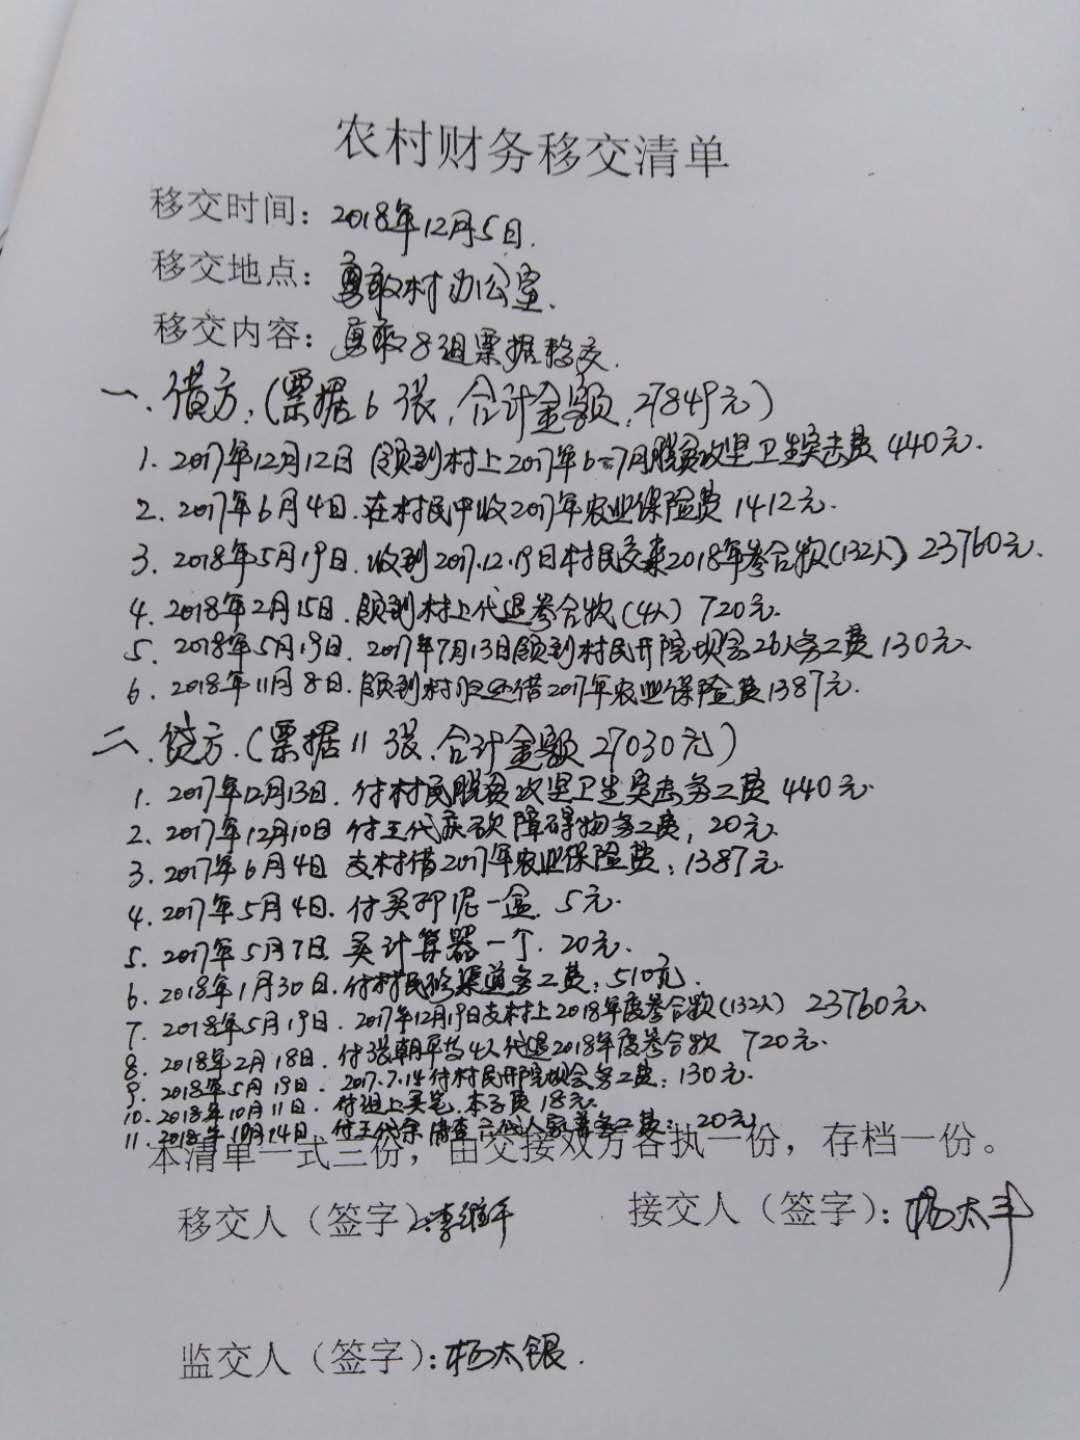 农村财务移交清单
移交时间：2018年12月5日.
移交地点：勇敢村办公室.
移交内容：勇敢8组票据移交.
一、借方.(票据6张,合计金额,27849元)
1. 2017年12月12日 领到村上2017年6-7月脱贫攻坚卫生突击费440元.
2. 2017年6月4日.在村民中收2017年农业保险费1412元.
3. 2018年5月19日.收到2017.12.19日村民交来2018年参合款(132人) 23760元.
4. 2018年2月15日.领到村上代退参合款(4人) 720元.
5. 2018年5月19日. 2017年7月13日领到村民开院坝会26人务工费130元.
6. 2018年11月8日.领到村归还借2017年农业保险费1387元.
二、贷方.(票据11张,合计金额27030元)
1. 2017年12月13日.付村民脱贫攻坚卫生突击务工费440元.
2. 2017年12月10日 付王代 砍障碍物务工费, 20元.
3. 2017年6月4日 支村借2017年农业保险费: 1387元.
4. 2017年5月4日.付买印泥一盒. 5元.
5. 2017年5月7日 买计算器一个. 20元.
6. 2018年1月30日.付村民修渠道务工费: 510元.
7. 2018年5月19日. 2017年12月19日支村上2018年度参合款(132人) 23760元.
8. 2018年2月18日.付张朝平等4人代退2018年度参合款 720元.
9. 2018年5月19日. 2017.7.14付村民开院坝会务工费: 130元.
10. 2018年10月11日.付组上买笔.本子费18元.
11. 2018年10月14日 付王代 清查 人家 务工费: 20元
本清单一式三份，由交接双方各执一份，存档一份。
移交人（签字）: 李维平
接交人（签字）: 杨太丰
监交人（签字）: 杨太银.